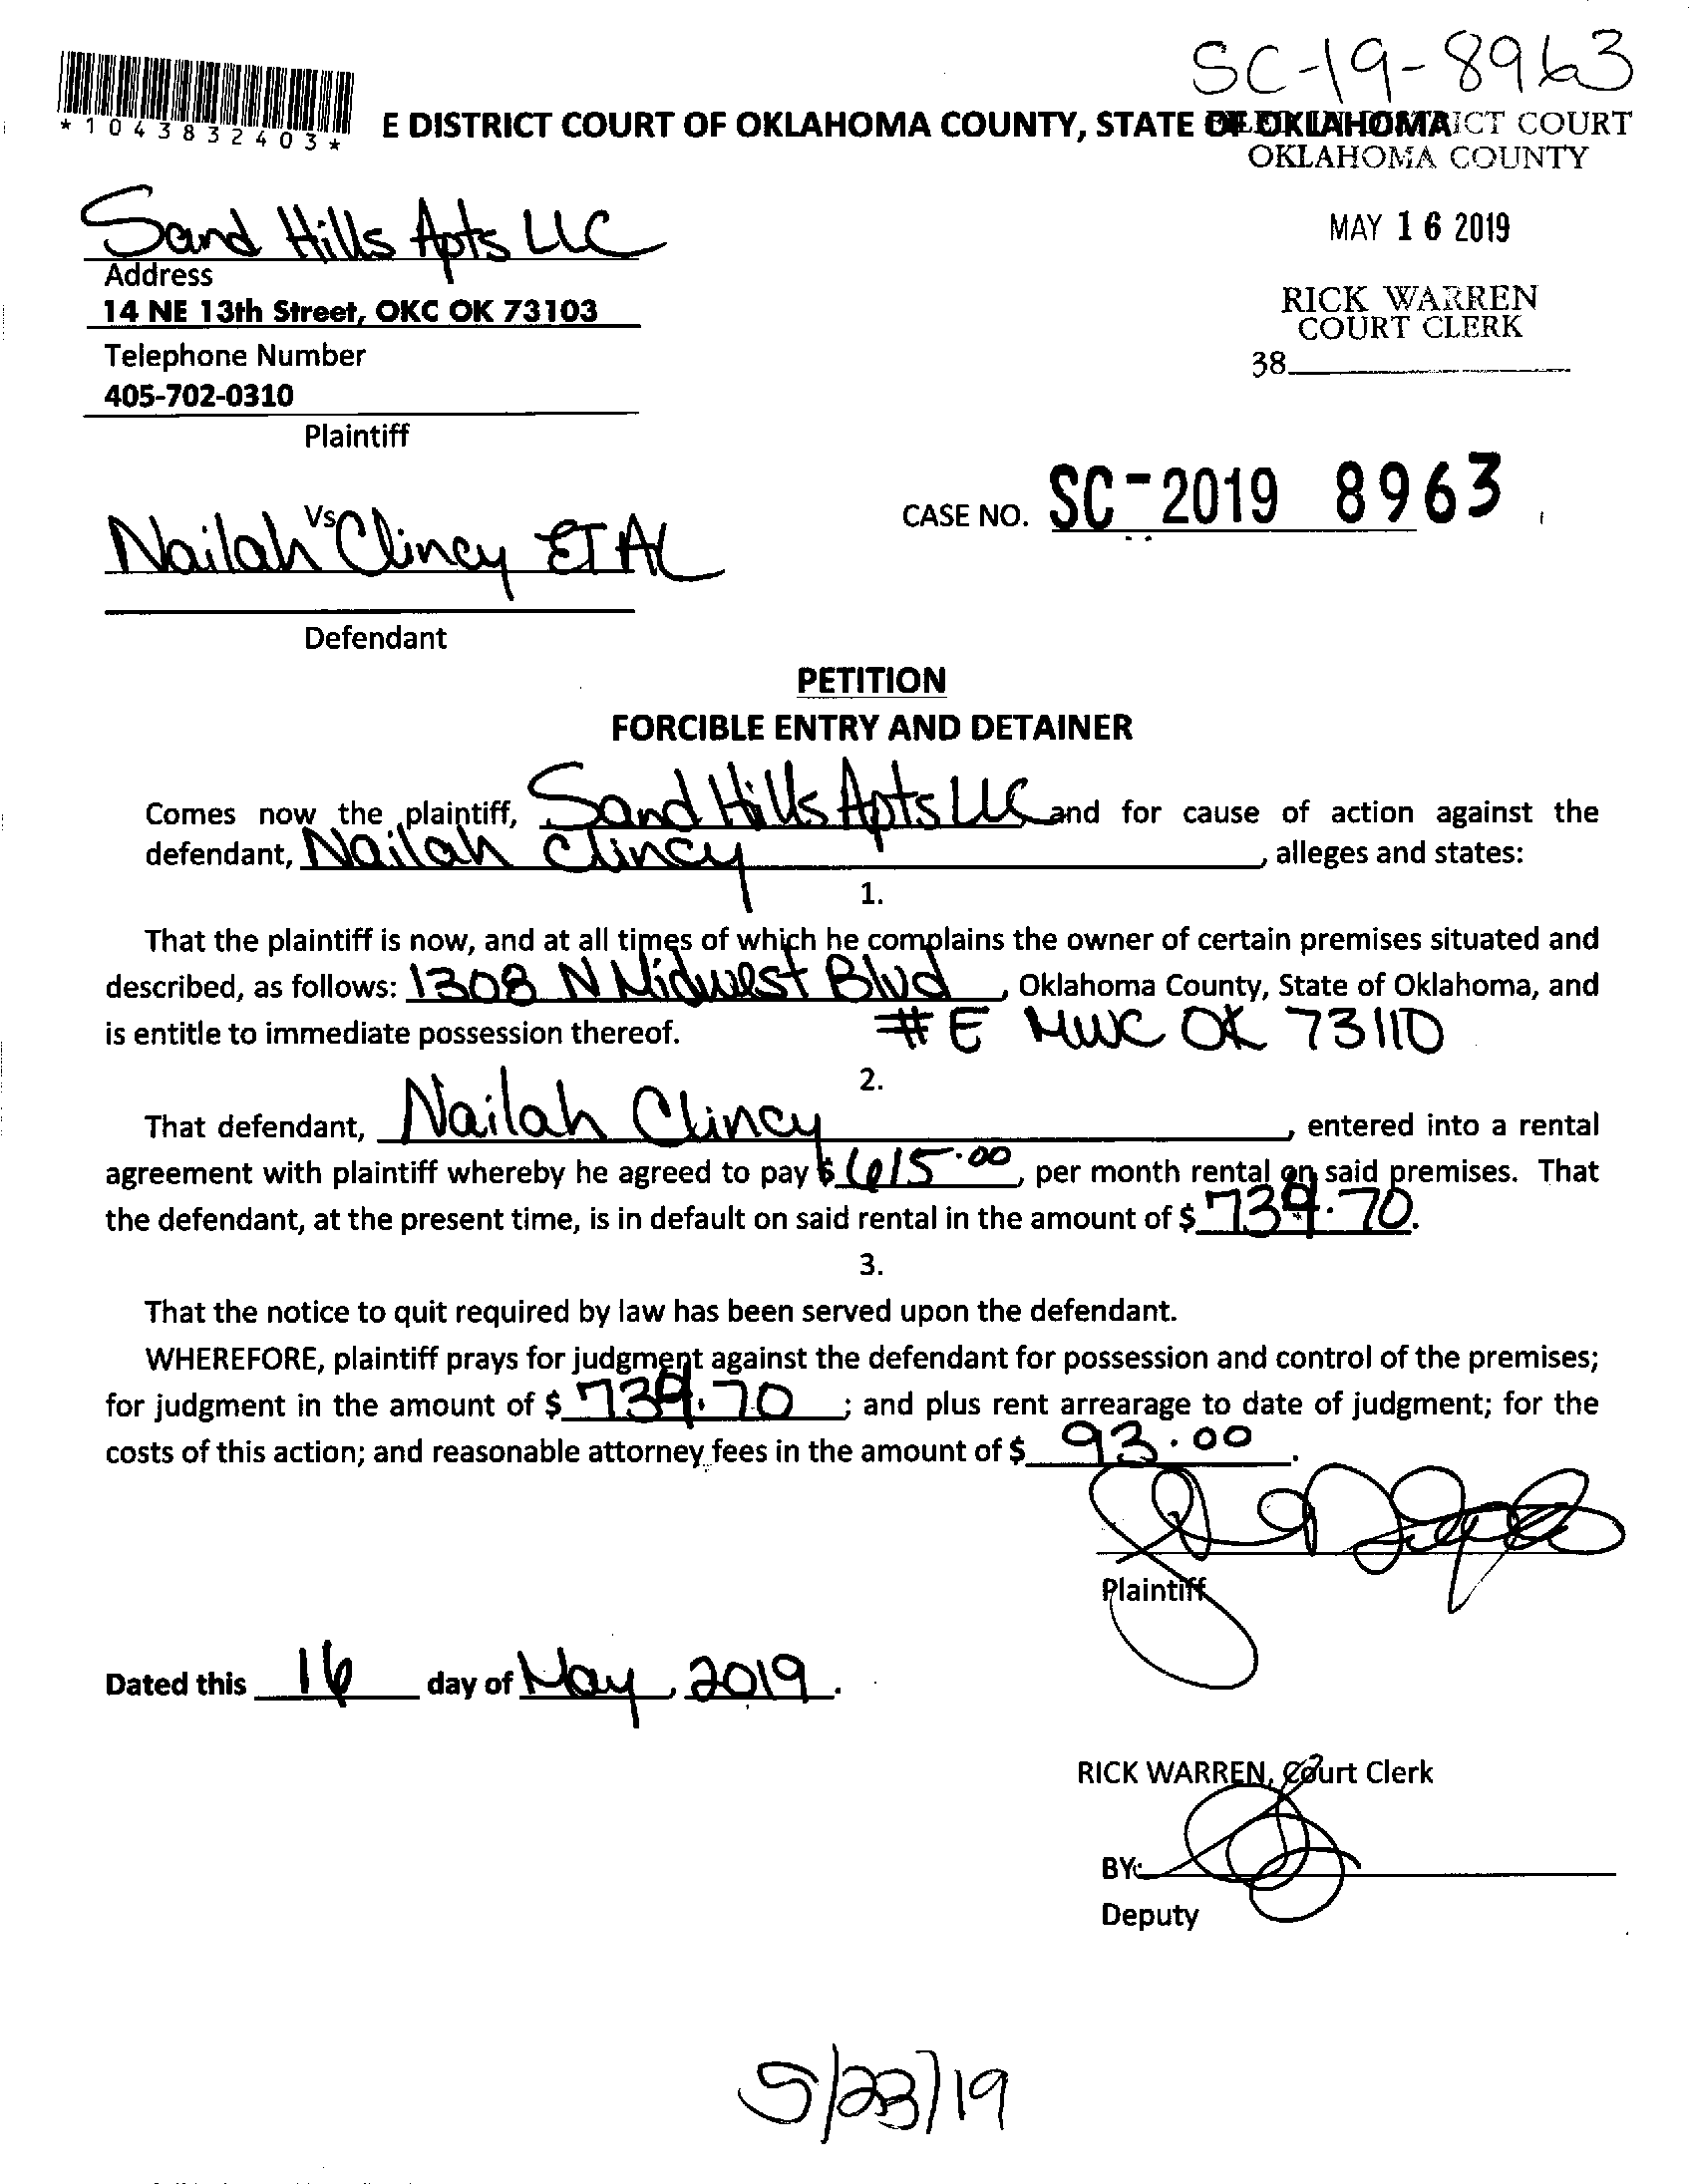 SC-19-8963
*1043832403*
E DISTRICT COURT OF OKLAHOMA COUNTY, STATE OF OKLAHOMA
ICT COURT
OKLAHOMA COUNTY
Sand Hills Apts LLC
MAY 16 2019
Address
14 NE 13th Street, OKC OK 73103
RICK WARREN
COURT CLERK
Telephone Number
38
405-702-0310
Plaintiff
CASE NO. SC-2019 8963
Vs
Nailah Clincy ET AL
Defendant
PETITION
FORCIBLE ENTRY AND DETAINER
Comes now the plaintiff, Sand Hills Apts LLC and for cause of action against the
defendant, Nailah Clincy, alleges and states:
1.
That the plaintiff is now, and at all times of which he complains the owner of certain premises situated and
described, as follows: 1308 N Midwest Blvd, Oklahoma County, State of Oklahoma, and
is entitle to immediate possession thereof. #E MWC OK 73110
2.
That defendant, Nailah Clincy, entered into a rental
agreement with plaintiff whereby he agreed to pay $ 615.00, per month rental on said premises. That
the defendant, at the present time, is in default on said rental in the amount of $ 739.70.
3.
That the notice to quit required by law has been served upon the defendant.
WHEREFORE, plaintiff prays for judgment against the defendant for possession and control of the premises;
for judgment in the amount of $ 739.70; and plus rent arrearage to date of judgment; for the
costs of this action; and reasonable attorney fees in the amount of $ 93.00.
Plaintiff
Dated this 16 day of May, 2019.
RICK WARREN, Court Clerk
BY:
Deputy
5/23/19